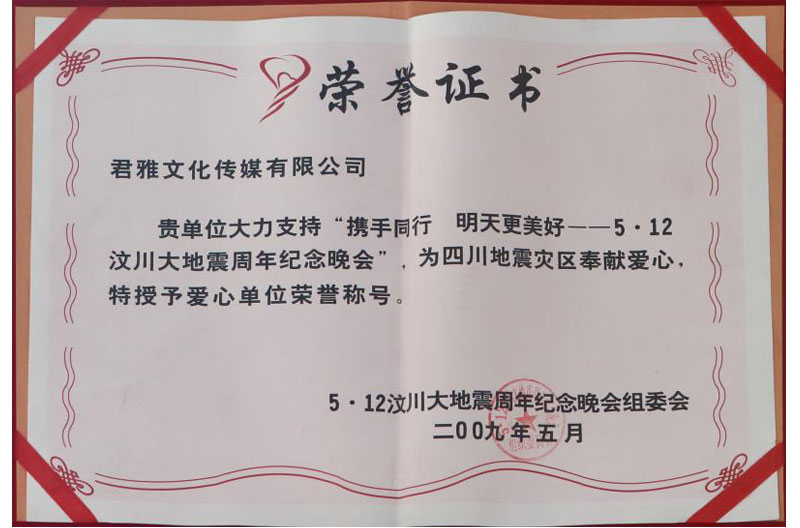 荣誉证书
君雅文化传媒有限公司
贵单位大力支持“携手同行 明天更美好——5·12
汶川大地震周年纪念晚会”,为四川地震灾区奉献爱心,
特授予爱心单位荣誉称号。
5·12汶川大地震周年纪念晚会组委会
二00九年五月